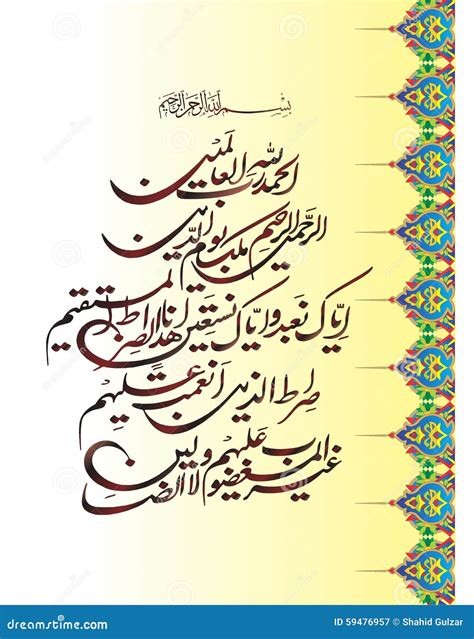 بسم الله الرحمن الرحيم
الحمد لله رب العالمين
الرحمن الرحيم ملك يوم الدين
إياك نعبد وإياك نستعين اهدنا الصراط المستقيم
صراط الذين أنعمت عليهم
غير المغضوب عليهم ولا الضالين
dreamstime
ID 59476957 © Shahid Gulzar